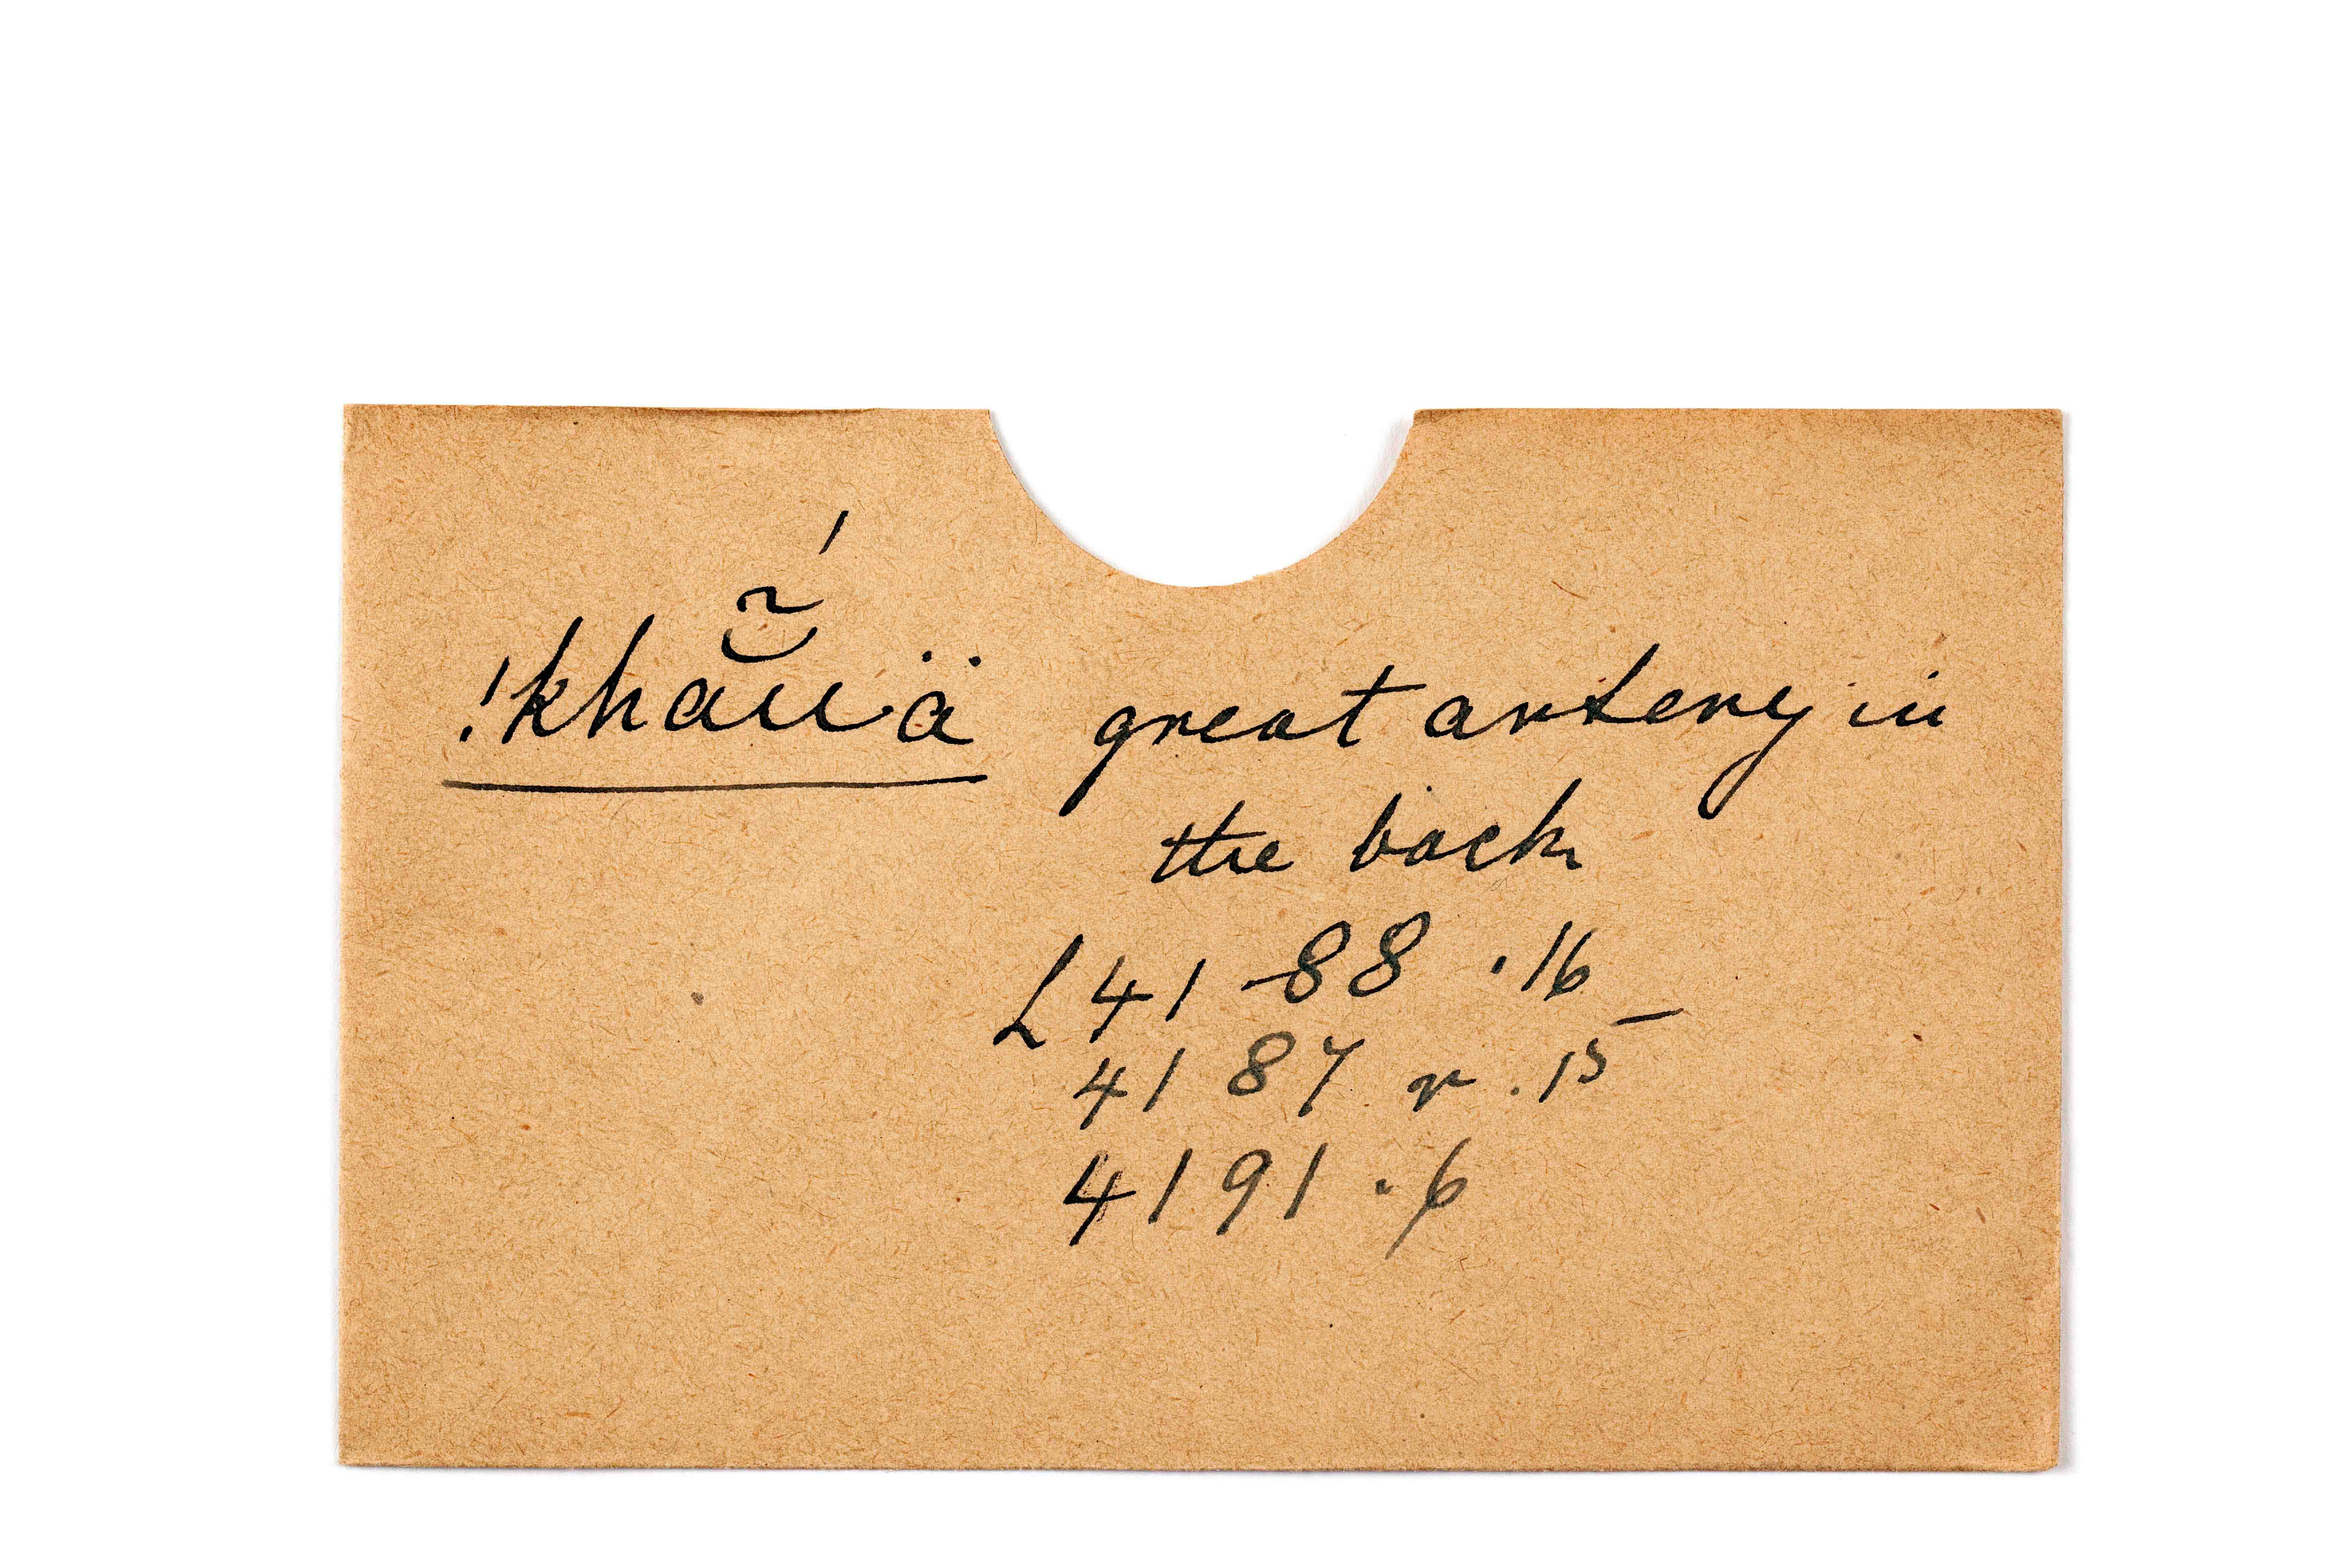 !khā̆̃úä great artery in
the back
L 4188 . 16
4187 r . 15
4191 . 6